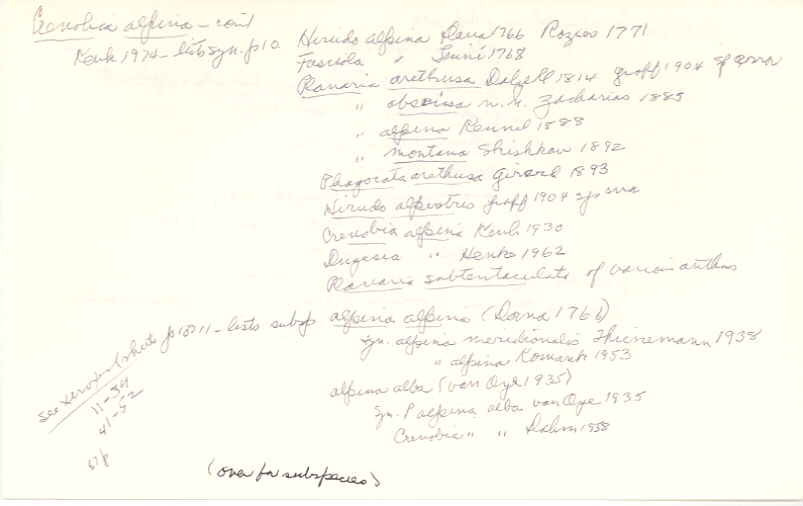 Crenobia alpina - cont
Kenk 1974 - lists syn. p10 Hirudo alpina Dana 1766 Rozier 1771
Fasciola " Linné 1768
Planaria arethusa Dalyell 1814 graff 1904 sp error
" abscissa n. n. Zacharias 1885
" alpina Kennel 1888
" montana Shishkov 1892
Phagocata arethusa Girard 1893
Hirudo alpestris graff 1904 sp error
Crenobia alpina Kenk 1930
Dugesia " Henke 1962
Planaria subtentaculata of various authors
p 10, 11 - lists subsp. alpina alpina (Dorna 1766)
syn. alpina meridionalis Thienemann 1938
" alpina Komarek 1953
alpina alba (van Oye 1935)
syn. P alpina alba van Oye 1935
Crenobia " " Dahm 1958
see xeroxed sheets
11-34
41-52
57 p
(over for subspecies)